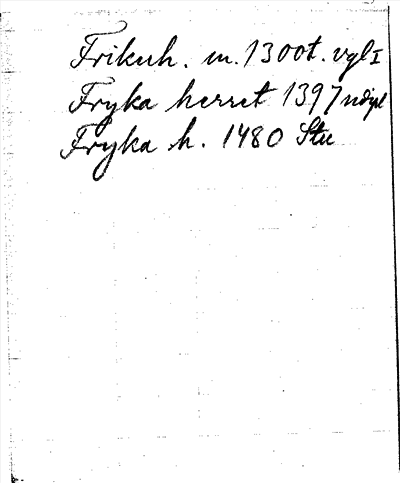 Frikuh. m. 1300t. vgl I
Fryka herret 1397 ndpl
Fryka h. 1480 Stu